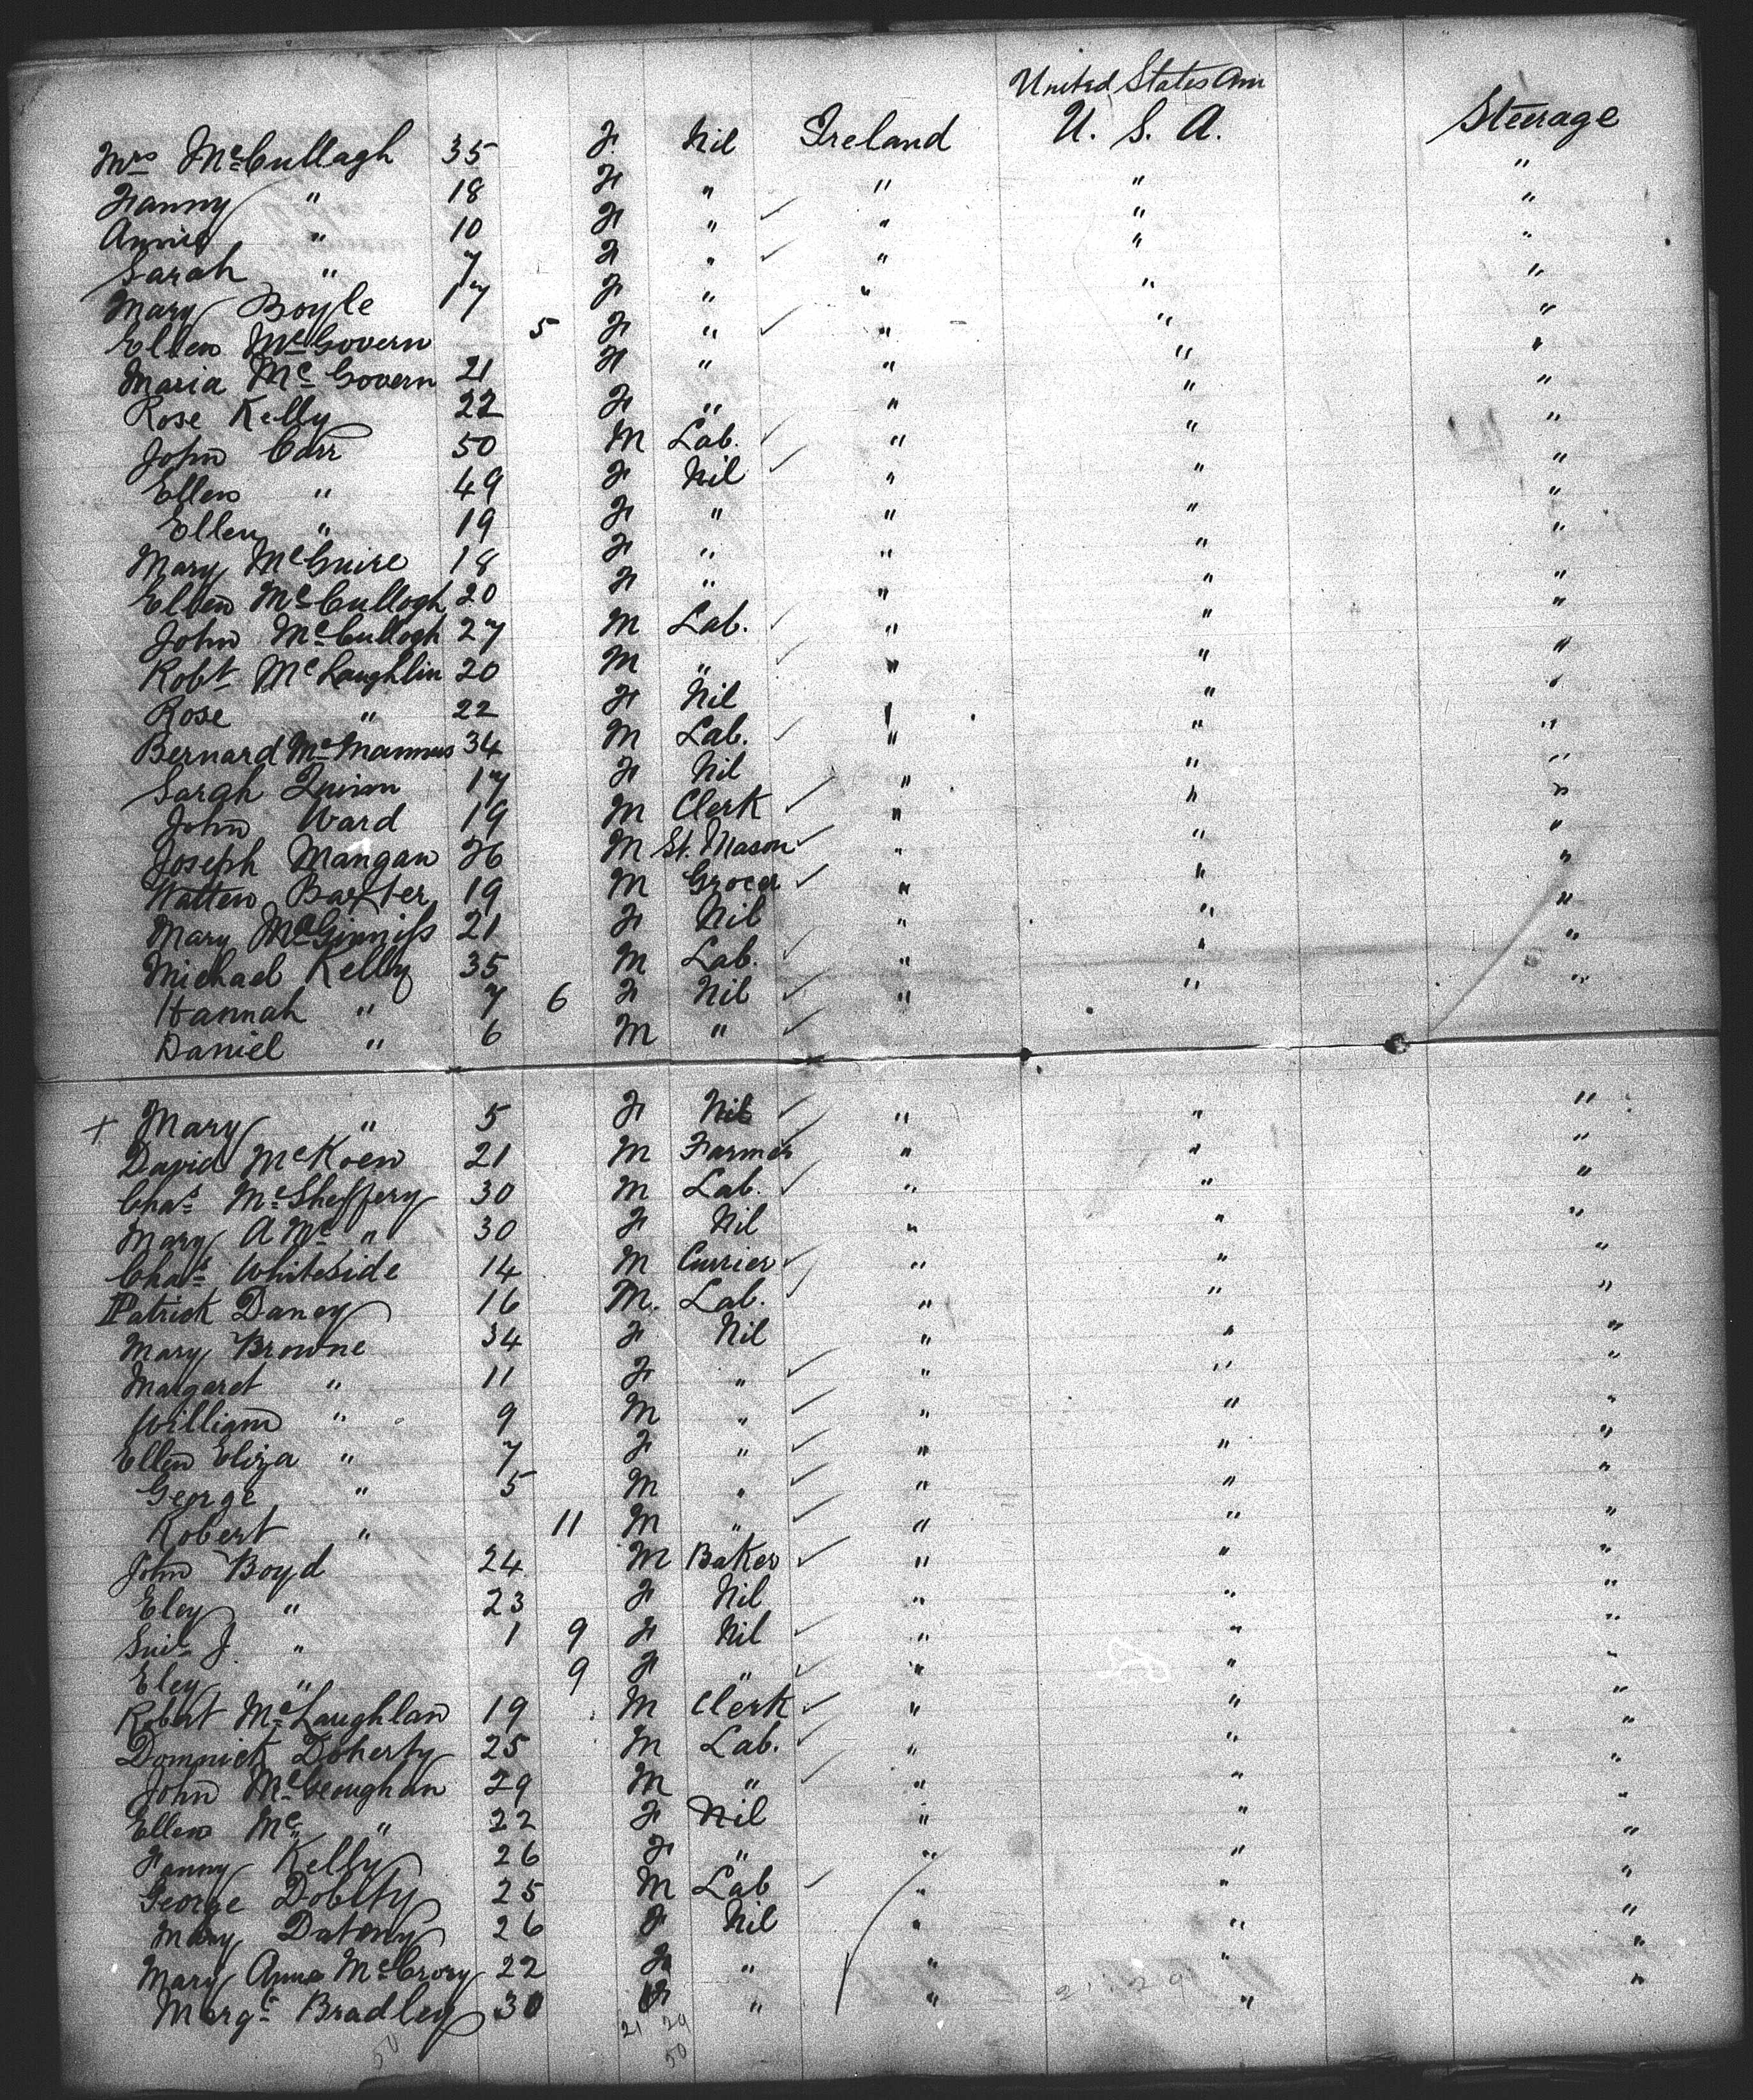 United States Am
Mrs McCullagh 35 F Nil Ireland U. S. A. Steerage
Fanny " 18 F " " " "
Annie " 10 F " " " "
Sarah " 7 F " " " "
Mary Boyle 17 F " " " "
Ellen McGovern 5 F " " " "
Maria McGovern 21 F " " " "
Rose Kelly 22 F " " " "
John Carr 50 M Lab. " " "
Ellen " 49 F Nil " " "
Ellen " 19 F " " " "
Mary McGuire 18 F " " " "
Ellen McCullogh 20 F " " " "
John McCullogh 27 M Lab. " " "
Robt McLaughlin 20 M " " " "
Rose " 22 F Nil " " "
Bernard McMannus 34 M Lab. " " "
Sarah Quinn 17 F Nil " " "
John Ward 19 M Clerk " " "
Joseph Mangan 26 M St. Mason " " "
Baxter 19 M Grocer " " "
Mary McGinniss 21 F Nil " " "
Michael Kelly 35 M Lab. " " "
Hannah " 7 6 F Nil " " "
Daniel " 6 M "
+ Mary " 5 F Nil " " "
David McKoen 21 M Farmer " " "
Chas McSheffery 30 M Lab. " " "
Mary A Mc " 30 F Nil " " "
Chas Whiteside 14 M Currier " " "
Patrick Daney 16 M. Lab. " " "
Mary Browne 34 F Nil " " "
Margaret " 11 F " " " "
William " 9 M " " " "
Ellen Eliza " 7 F " " " "
George " 5 M " " " "
Robert " 11 M " " " "
John Boyd 24 M Baker " " "
Eley " 23 F Nil " " "
J. " 1 9 F Nil " " "
Eley " 9 F " " " "
Robert McLaughlan 19 M Clerk " " "
Domnick Doherty 25 M Lab. " " "
John 29 M " " " "
Ellen Mc " 22 F Nil " " "
Fanny Kelly 26 F " " " "
George 25 M Lab " " "
Mary 26 F Nil " " "
Mary Anna McCrory 22 F " " " "
Margt Bradley 30 F " " " "
21 29
50 50